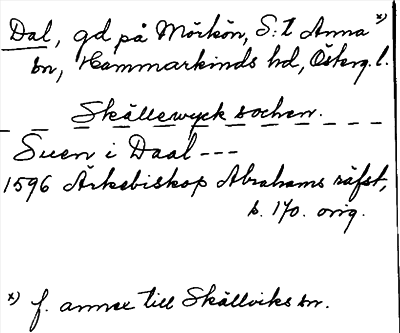 Dal, gd på Mörkön, S:t Anna x)
sn, Hammarkinds hd, Österg. l.
Skällewyck sochen.
Suen i Daal ---
1596 Ärkebiskop Abrahams räfst,
s. 170. orig.
x) f. annex till Skällviks sn.